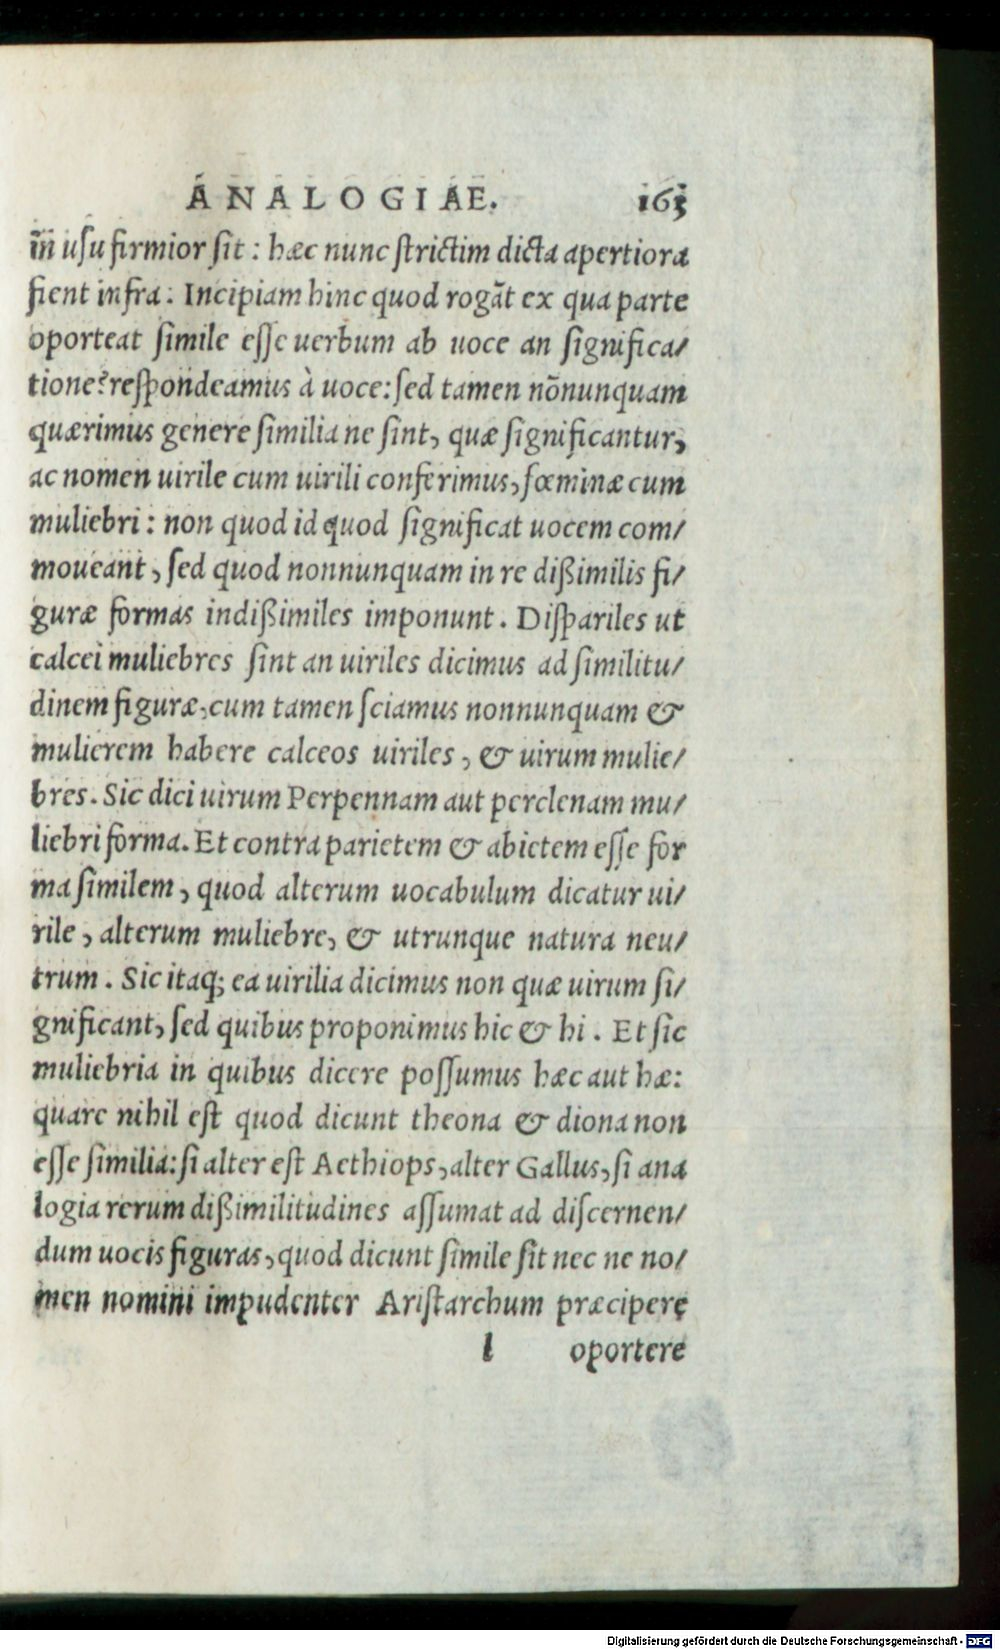 ANALOGIAE. 163
in usu firmior sit : hæc nunc strictim dicta apertiora
fient infra : Incipiam hinc quod rogāt ex qua parte
oporteat simile esse uerbum ab uoce an significa/
tione? respondeamus à uoce: sed tamen nōnunquam
quærimus genere similia ne sint, quæ significantur,
ac nomen uirile cum uirili conferimus, fœminæ cum
muliebri : non quod id quod significat uocem com/
moueant, sed quod nonnunquam in re dißimilis fi/
guræ formas indißimiles imponunt. Dispariles ut
calcei muliebres sint an uiriles dicimus ad similitu/
dinem figuræ, cum tamen sciamus nonnunquam &
mulierem habere calceos uiriles, & uirum mulie/
bres. Sic dici uirum Perpennam aut perclenam mu/
liebri forma. Et contra parietem & abietem esse for
ma similem, quod alterum uocabulum dicatur ui/
rile, alterum muliebre, & utrunque natura neu/
trum. Sic itaq; ea uirilia dicimus non quæ uirum si/
gnificant, sed quibus proponimus hic & hi. Et sic
muliebria in quibus dicere possumus hæc aut hæ:
quare nihil est quod dicunt theona & diona non
esse similia: si alter est Aethiops, alter Gallus, si ana
logia rerum dißimilitudines assumat ad discernen/
dum uocis figuras, quod dicunt simile sit nec ne no/
men nomini impudenter Aristarchum præcipere
l oportere
Digitalisierung gefördert durch die Deutsche Forschungsgemeinschaft - DFG